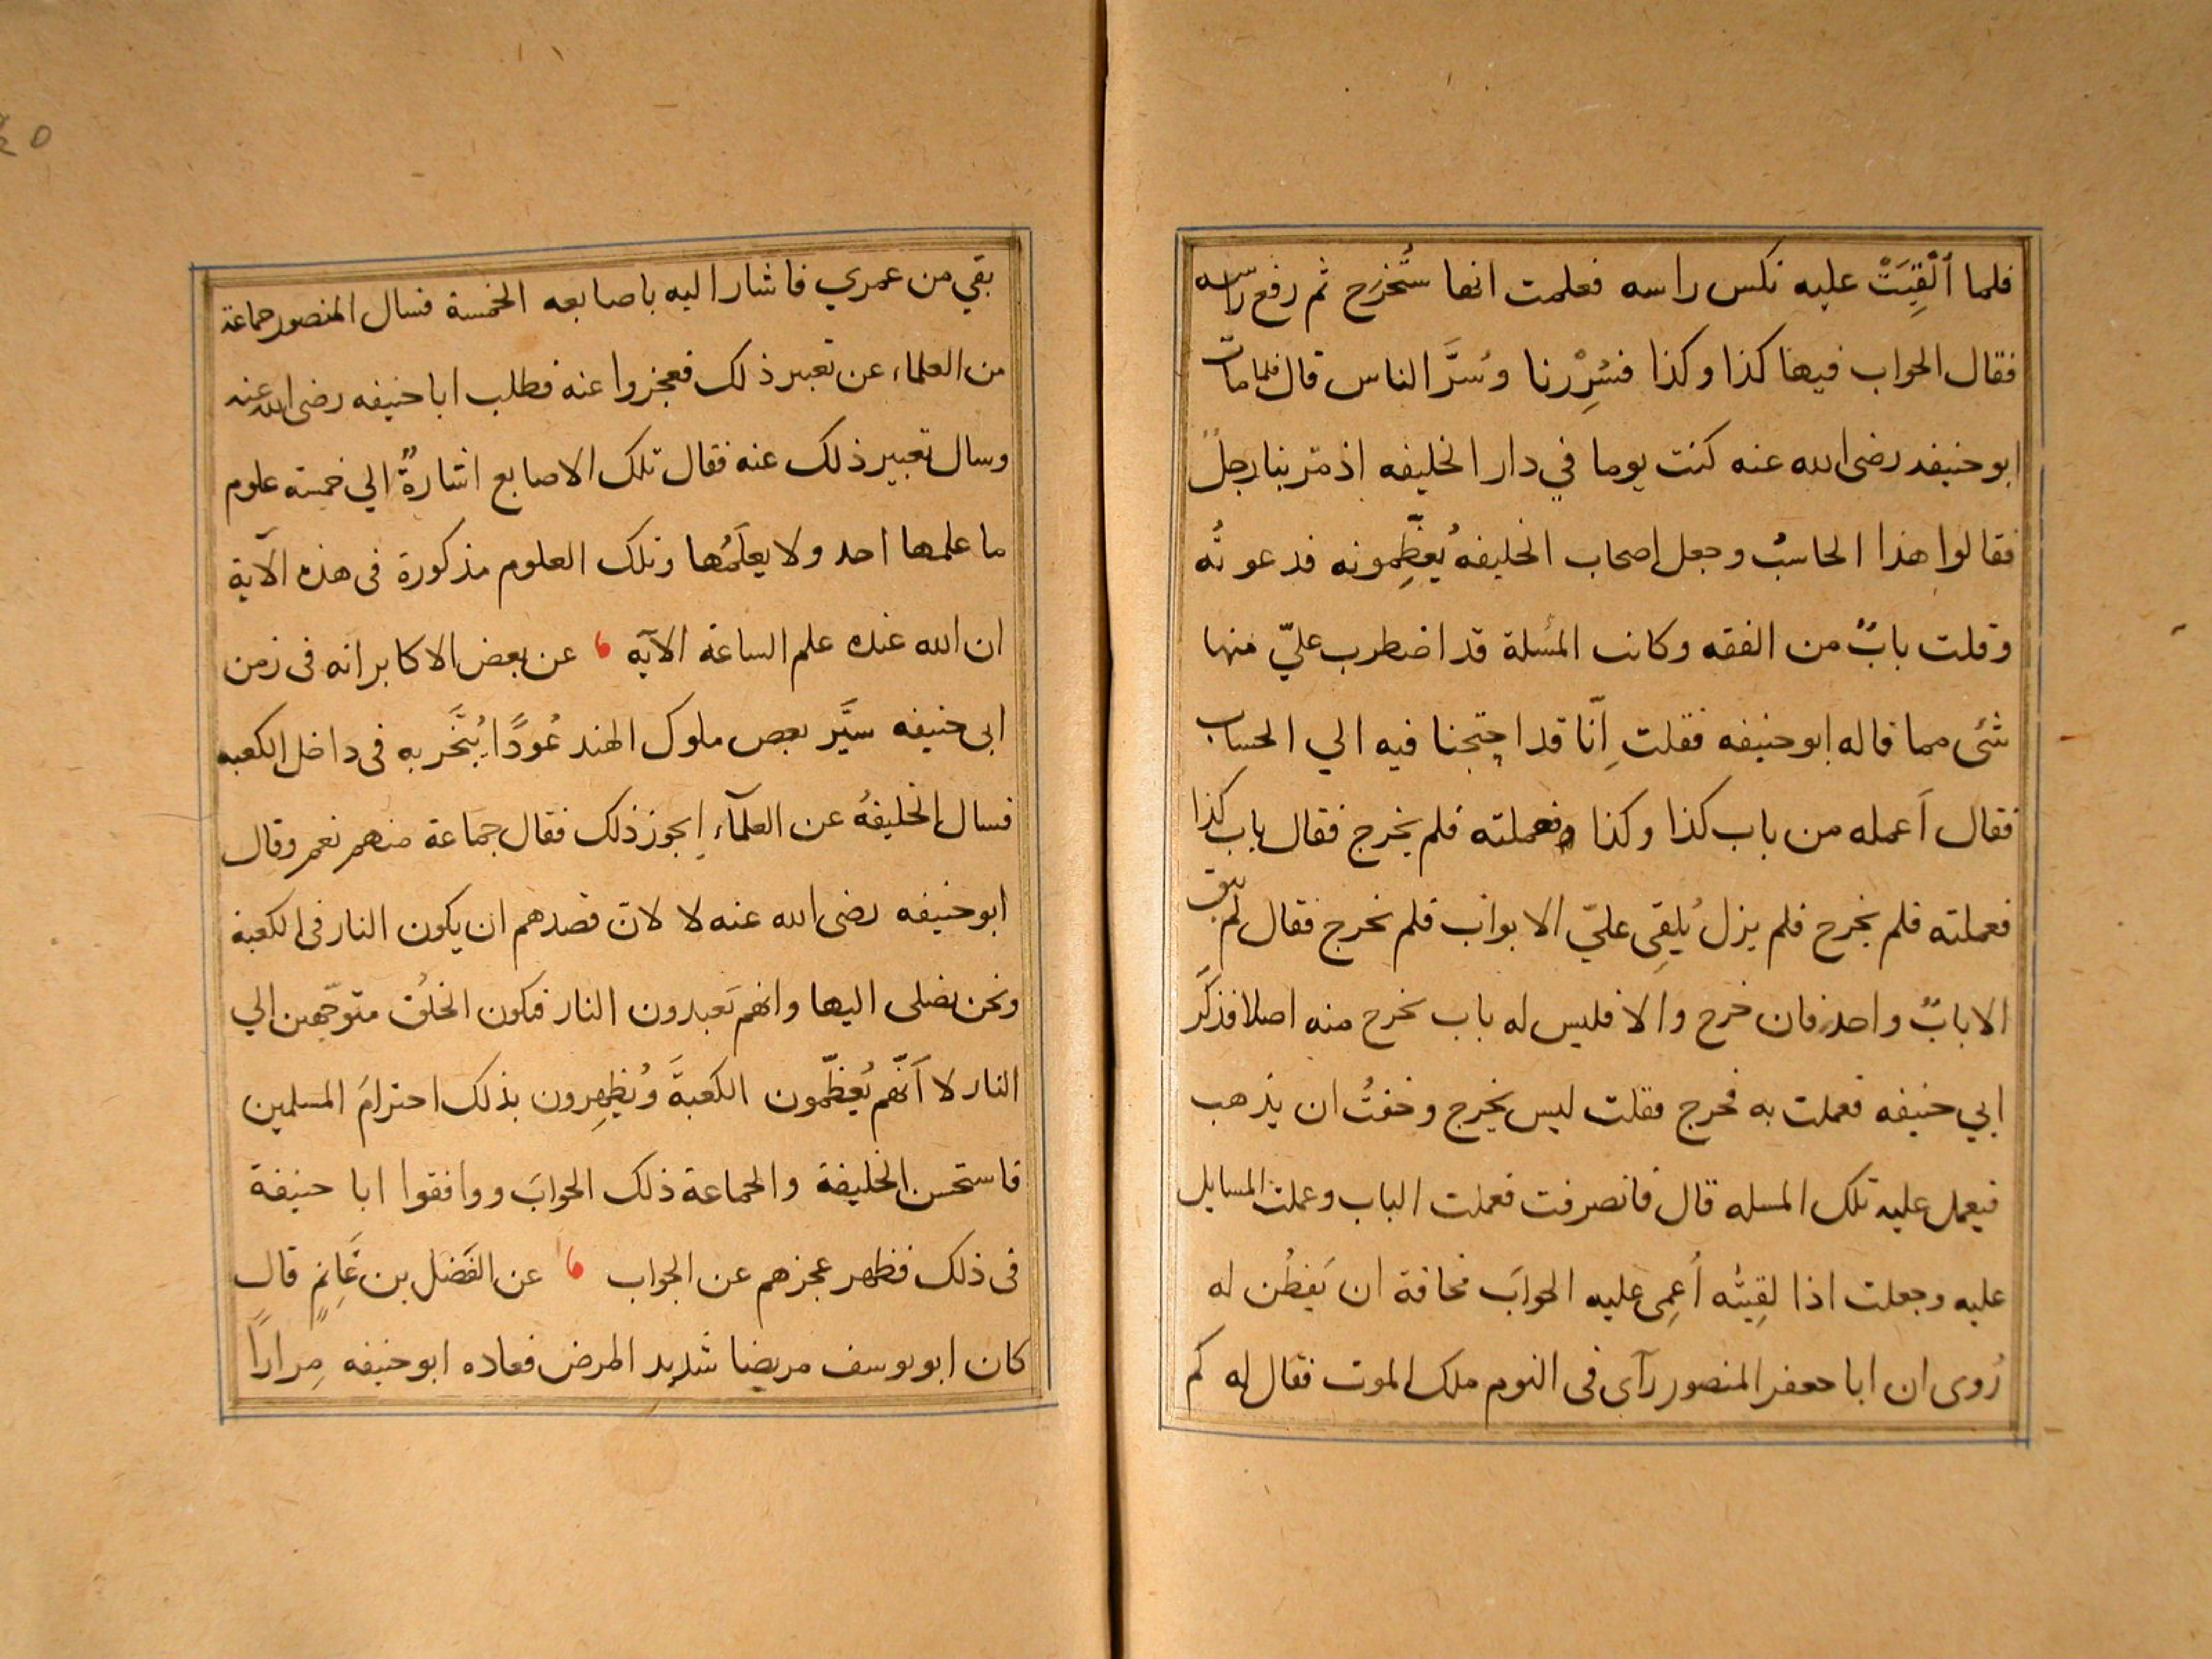 فلما اُلْقِيَتْ عليه نكس راسه فعلمت انها ستُخرَج ثم رفع راسه
فقال الجواب فيها كذا وكذا فسُرِرْنا وسُرَّ الناس قال فلما مات
ابو حنيفه رضى الله عنه كنت يوما في دار الخليفه اذ مّر بنا رجلٌ
فقالوا هذا الحاسبُ وجعل اصحاب الخليفه يُعظِّمونه فدعوتُه
وقلت بابٌ من الفقه وكانت المسُلة قد اضطرب عليّ منها
شئ مما قاله ابو حنيفه فقلت اِنّا قد احتجنا فيه الي الحساب
فقال اَعمله من باب كذا وكذا فعملته فلم يخرج فقال باب كذا
فعملته فلم يخرج فلم يزل يُلقِى عليّ الابواب فلم يخرج فقال لم يبق
الا بابٌ واحد فان خرج والا فليس له باب يخرج منه اصلا فذكَر
ابي حنيفه فعملت به فخرج فقلت ليس يخرج وخفتُ ان يذهب
فيعمل عليه تلك المسله قال فانصرفت فعملت الباب وعملت المسايل
عليه وجعلت اذا لقِيتُه اُعمِى عليه الجوابَ مخافة ان يَفطُن له
رُوى ان ابا جعفر المنصور رآى فى النوم ملك الموت فقال له كم
بقي من عمري فاشار اليه باصابعه الخمسة فسال المنصور جماعة
من العلماء عن تعبير ذلك فعجزوا عنه فطلب ابا حنيفه رضى الله عنه
وسال تعبير ذلك عنه فقال تلك الاصابع اشارةٌ الي خمسة علوم
ما علمها احد ولا يعلَمُها وتلك العلوم مذكورة فى هذه الآية
ان الله عنده علم الساعة الآيه عن بعض الاكابر انه فى زمن
ابى حنيفه سيَّر بعض ملوك الهند عُودًا يُبَّخر به فى داخل الكعبه
فسال الخليفهُ عن العلمآء ايجوز ذلك فقال جماعة منهم نعم وقال
ابو حنيفه رضى الله عنه لا لان قصدهم ان يكون النار فى الكعبة
ونحن نصلى اليها وانهم يَعبدون النار فيكون الخلقُ متوجّهين الي
النار لا اَنّهم يُعظّمون الكعبةَ ويُظهِرون بذلك احترامَ المسلمين
فاستحسن الخليفة والجماعة ذلك الجوابَ ووافقوا ابا حنيفة
فى ذلك فظهر عجزهم عن الجواب عن الفَضل بن غَانِمٍ قال
كان ابو يوسف مريضا شديد المرض فعاده ابو حنيفه مِرارًا